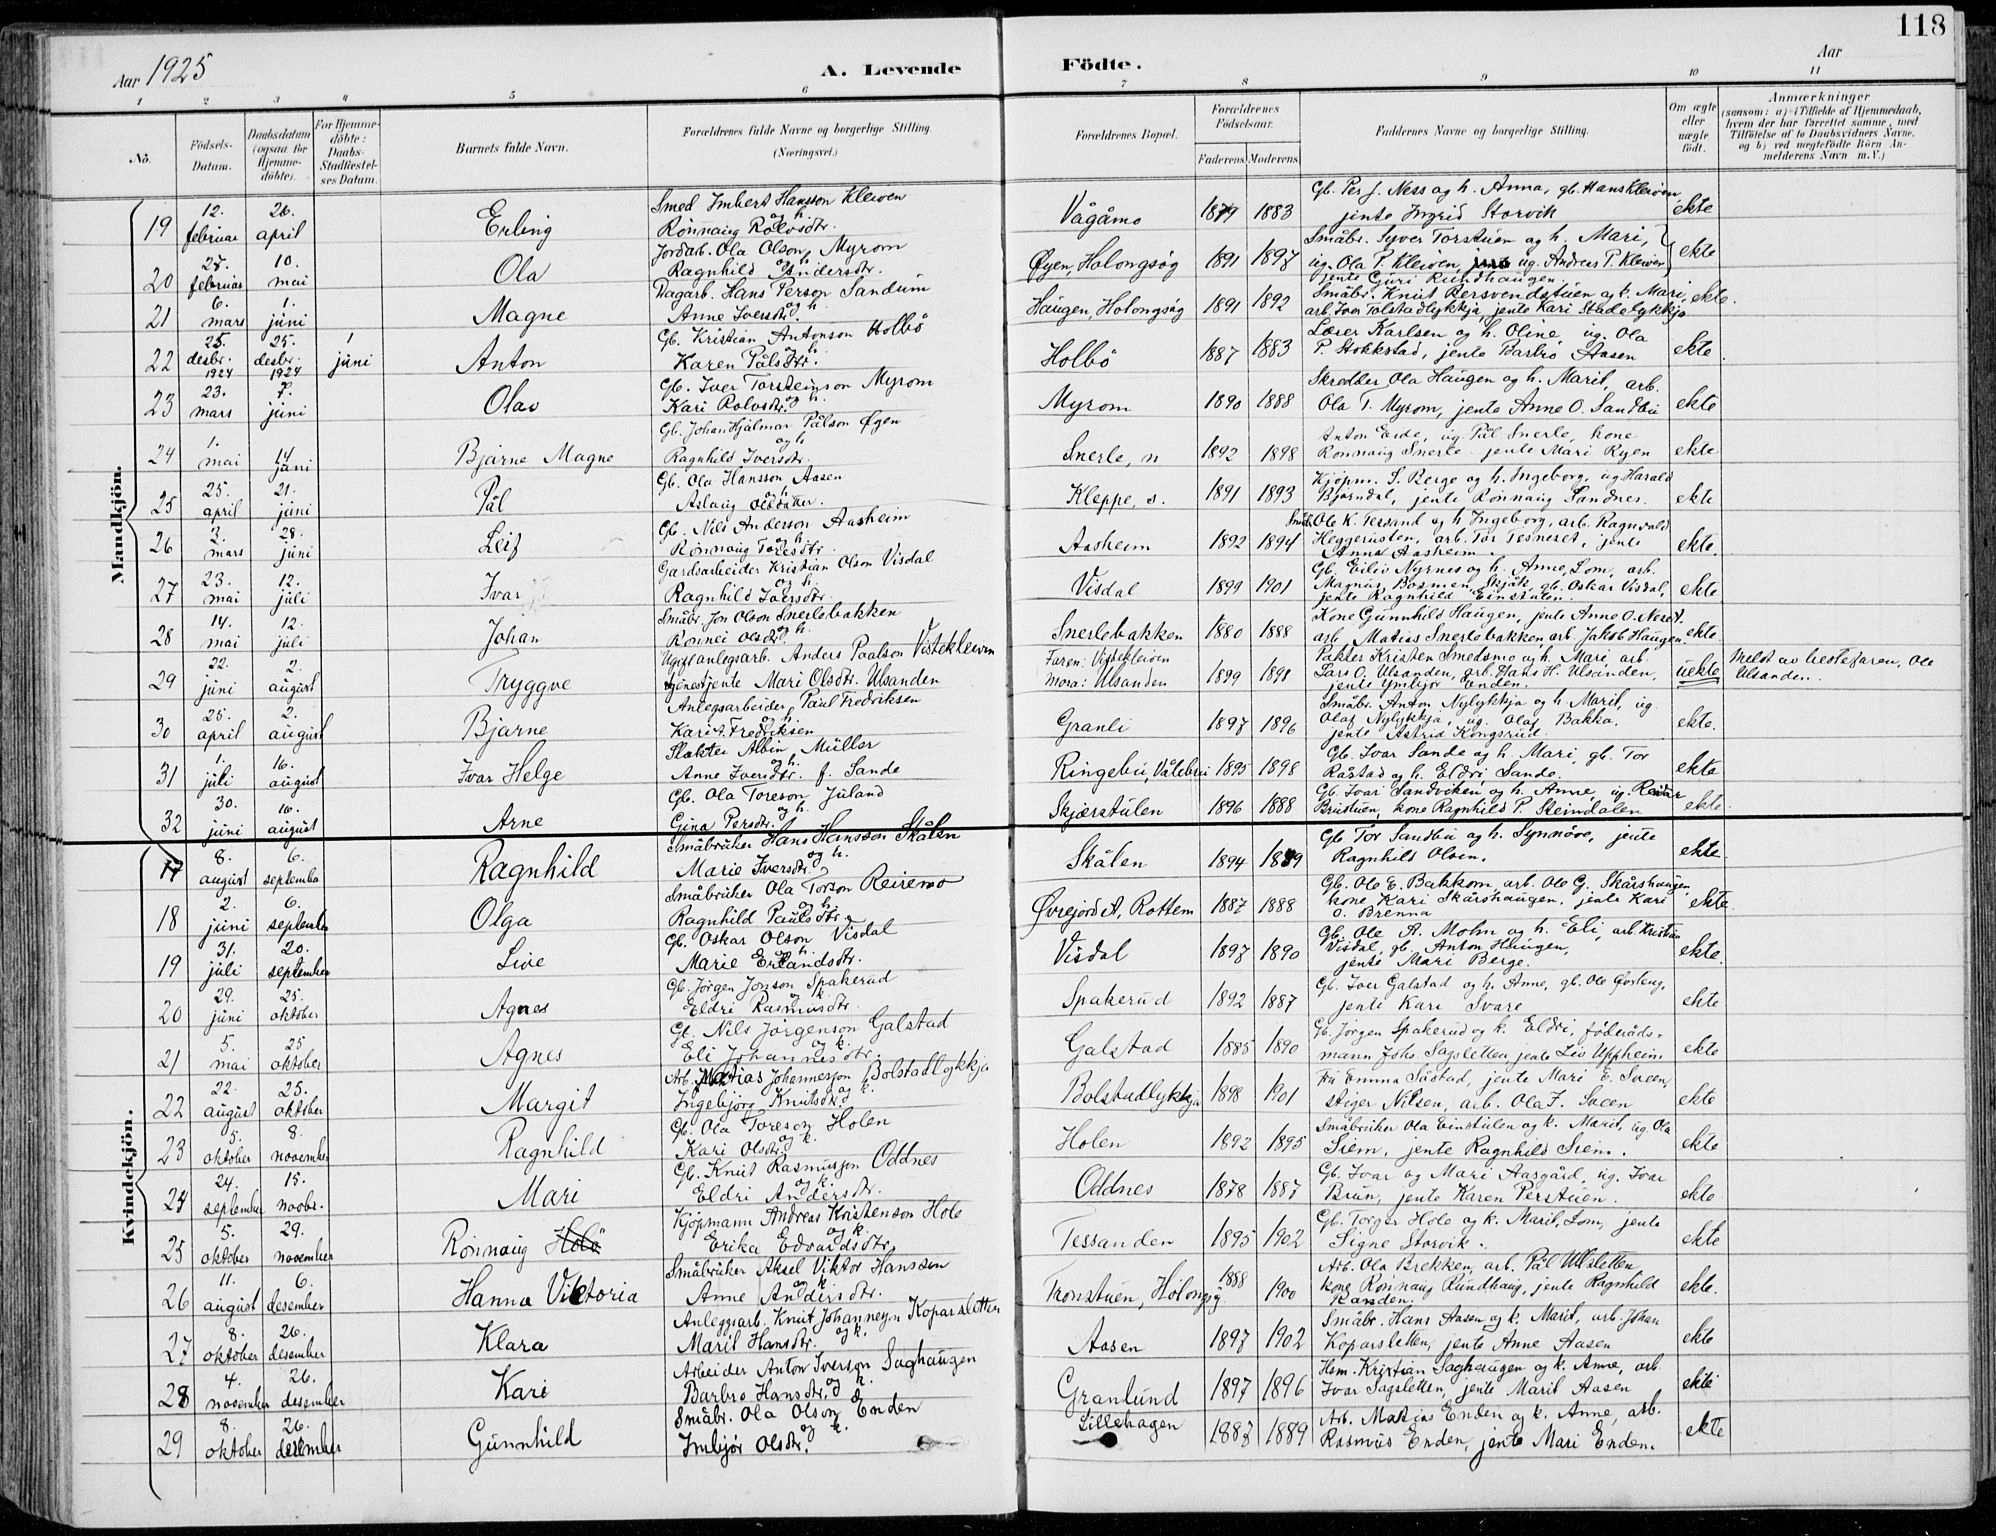 118
Aar 1925
A. Levende
Födte.
Aar
1 2 3 4 5 6 7 8 9 10 11
No.
Födsels-Datum.
Daabsdatum (ogsaa for Hjemme-döbte).
For Hjemme-döbte: Daabs-Stadfæstel-ses Datum.
Barnets fulde Navn.
Forældrenes fulde Navne og borgerlige Stilling. (Næringsvei.)
Forældrenes Bopæl.
Forældrenes Födselsaar.
Faderens Moderens
Faddernes Navne og borgerlige Stilling.
Om ægte eller uægte født.
Anmærkninger
(saasom: a) i Tilfælde af Hjemmedaab, hvem der har forrettet samme, med Tilföielse af to Daabsvidners Navne, og b) ved uægtefödte Börn Anmelderens Navn m.V.)
Mandkjön.
19 12. februar 26. april Erling Smed Imbert Hansson Kleiven og h. Rønnaug Rolvsdtr. Vågåmo 1879 1883 Gb. Per J. Ness og h. Anna, gb. Hans Kleiven, jente Ingrid Storvik ekte
20 27. februar 10. mai Ola Jordarb. Ola Olson Myrom og h. Ragnhild Andersdtr. Øyen, Holongsøg 1891 1897 Småbr. Syver Torstuen og h. Mari, ug. Ola P. Kleiven, ug. Andreas P. Kleiven, jente Guri Rundhaugen ekte
21 6. mars 1. juni Magne Dagarb. Hans Person Sandum og h. Anne Iversdtr. Haugen, Holongsøg 1891 1892 Småbr. Knut Bersvendstuen og k. Mari, arb. Iver Tolstadlykkja, jente Kari Stadelykkja ekte.
22 25. desbr. 1924 25. desbr. 1924 1 juni Anton Gb. Kristian Antonson Holbö og h. Karen Pålsdtr. Holbö 1887 1883 Lærer Karlsen og h. Oline, ug. Ola P. Stokkstad, jente Barbro Aasen ekte
23 23. mars 7. juni Olav Gb. Iver Torsteinson Myrom og h. Kari Rolvsdtr. Myrom 1890 1888 Skredder Ola Haugen og h. Marit, arb. Ola T. Myrom, jente Anne O. Sandbu ekte
24 1. mai 14 juni Bjarne Magne Gb. Johan Hjalmar Pålson Øyen og h Ragnhild Iversdtr. Snerle, n 1892 1898 Anton Eide, ug. Pål Snerle, kone Rønnaug Snerle jente Mari Ryen ekte
25 25. april 21. juni Pål Gb. Ola Hansson Aasen og h. Aslaug Oldsdtr. Kleppe, s. 1891 1893 Kjøpm. S. Berge og h. Ingeborg, ug. Harald Bjørndal, jente Rønnaug Sandnes. ekte
26 3. mars 28. juni Leif Gb. Nils Anderson Aasheim og h. Rønnaug Toresdtr. Aasheim 1892 1894 Småbr. Ole K. Tessand og h Ingeborg, arb. Ragnvald Heggerusten, arb. Tor Tesneset, jente Anna Aasheim. ekte.
27 23. mai 12. juli Ivar Gardsarbeider Kristian Olson Visdal og h. Ragnhild Iversdtr. Visdal 1899 1901 Gb. Eiliv Nyrnes og h. Anne, Lom, arb. Magnus Bosmen, Skjåk, gb. Oskar Visdal, jente Ragnhild Einstulen. ekte
28 14. mai 12. juli Johan Småbr. Jon Olson Snerlebakken og h. Rønnei Olsdtr. Snerlebakken 1880 1888 Kone Gunnhild Haugen, jente Anne O. Neset. arb. Matias Snerlebakken arb. Jakob Haugen ekte.
29 22. juni 2. august Tryggve Ugift anlegsarb. Anders Paalson Vistekleiven tjenestjente Mari Olsdtr. Ulsanden Faren: Vistekleiven Mora: Ulsanden 1899 1898 Pakter Kristen Smedsmo og h. Mari, arb. Lars O. Ulsanden, arb. Hans H. Ulsanden, jente Ymbjør Enden. uekte Meldt av bestefaren, Ole Ulsanden.
30 25. april 2. august Bjarne Anlegsarbeider Paul Fredriksen og h Kari Fredriksen Granli 1897 1896 Småbr. Anton Nylykkja og h. Marit, ug. Olaf Nylykkja, ug. Olaf Bakka. jente Astrid Kongsrud. ekte.
31 1. juli 16. august Ivar Helge Slakter Albin Müller og h. Anne Iversdtr. f. Sande Ringebu, Vålebru 1895 1898 Gb. Ivar Sande og h. Mari, gb. Tor Råstad og h. Eldri Sande. ekte
32 30. juni 16. august Arne Gb. Ola Toreson Juland og h. Gina Persdtr. Skjærstulen 1896 1888 Gb. Ivar Sandviken og h. Anne, ug. Reidar Bristuen, kone Ragnhild P. Steindalen ekte.
Kvindekjön.
17 8. august 6. september Ragnhild Småbruker Hans Hansson Skålen og h. Marie Iversdtr. Skålen 1894 1889 Gb. Tor Sandbu og h. Synnöve, jente Ragnhild Olsen. ekte.
18 2. juni 6. september Olga Småbruker Ola Torson Reiremo og h. Ragnhild Paulsdtr. Øvrejordet, Rottem 1887 1888 Gb. Ole E. Bakkom, arb. Ole G. Skårshaugen, kone Kari Skårshaugen, jente Kari O. Brenna ekte.
19 31. juli 20. september Live Gb. Oskar Olson Visdal og h. Marie Erlandsdtr. Visdal 1897 1890 Gb. Ole A. Mohn og h. Eli, arb. Kristian Visdal, gb. Anton Haugen, jente Mari Berge. ekte.
20 29. juni 25. oktober Agnes Gb. Jörgen Jonson Spakerud og k. Eldri Rasmusdtr. Spakerud 1892 1887 Gb. Iver Galstad og h. Anne, gb. Ole Ørsteng, jente Kari Svare ekte
21 5. mai 25 oktober Agnes Gb. Nils Jörgenson Galstad og k. Eli Johannesdtr. Galstad 1885 1890 Gb. Jørgen Spakerud og k. Eldri, føderåds-mann Johs. Sagsletten, jente Liv Uppheim. ekte
22 22. august 25. oktober Margit Arb. Matias Johannesson Bolstadlykkja og k. Ingebjørg Knutsdtr. Bolstadlykkja 1898 1901 Fru Emma Såstad, jente Mari E. Sveen, stiger Nilsen, arb. Ola J. Sveen ekte
23 5. oktober 8. november Ragnhild Gb. Ola Toreson Holen og k. Kari Olsdtr. Holen 1892 1895 Småbruker Ola Einstulen og k. Marit, ug. Ola Siem, jente Ragnhild Siem. ekte
24 24. september 15. novbr. Mari Gb. Knut Rasmusson Oddnes og k. Eldri Andersdtr. Oddnes 1878 1887 Gb. Ivar og Mari Aasgård, ug. Ivar Brun, jente Karen Perstuen. ekte
25 5. oktober 29. november Rønnaug Holø Kjøpmann Andreas Kristenson Hole og k. Erika Edvardsdtr. Tessanden 1895 1902 Gb. Torger Hole og k. Marit, Lom, jente Signe Storvik. ekte
26 11. august 6. desember Hanna Viktoria Småbruker Aksel Viktor Hanssen og k. Anne Andersdtr. Tronstuen, Holongsøg 1888 1900 Arb. Ola Brekken, arb. Pål Ulsletten kone Rønnaug Rundhaug, jente Ragnhild Randen. ekte.
27 8. oktober 26. desember Klara Anleggsarb. Knut Johannesn Koparsletten og k. Marit Hansdtr. Aasen 1897 1902 Småbr. Hans Aasen og k. Marit, arb. Johan Koparsletten, jente Anne Aasen ekte
28 4. november 26. desember Kari Arbeider Anton Iverson Saghaugen og k. Barbro Hansdtr. Granlund 1897 1896 Hsm. Kristian Saghaugen og k. Anne, arb. Ivar Sagsletten, jente Marit Aasen ekte
29 8. oktober 26. desember Gunnhild Småbr. Ola Olson Enden og k. Imbjør Olsdtr. Lillehagen 1887 1889 Arb. Mathias Enden og k. Anne, arb. Rasmus Enden, jente Mari Enden. ekte